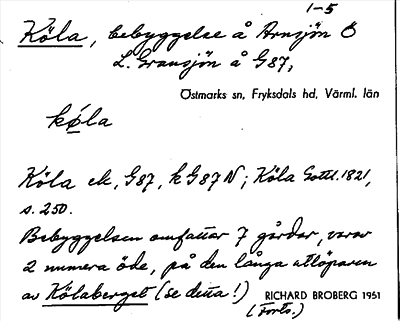 1-5
Köla, bebyggelse å Arnsjön Ö
L. Gransjön å G87,
Östmarks sn, Fryksdals hd, Värml. län
kǿla
Köla ek, G87, k G87 N; Köla Gottl. 1821,
s. 250.
Bebyggelsen omfattar 7 gårdar, varav
2 numera öde, på den långa utlöparen
av Kölaberget (se detta!) RICHARD BROBERG 1951
(Forts.)